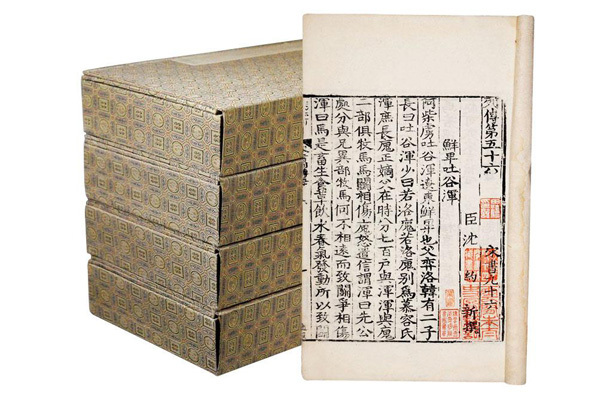 列傳第五十六 宋書九十六
臣沈 約 新撰
鮮卑吐谷渾
阿柴虜吐谷渾遼東鮮卑也父弈洛韓有二子
長曰吐谷渾少曰若洛廆若洛廆別爲慕容氏
渾庶長廆正嫡父在時分七百戶與渾渾與廆
二部俱牧馬馬鬭相傷廆怒遣信謂渾曰先公
處分與兄異部牧馬何不相遠而致鬭爭相傷
渾曰馬是畜生食草飲水春氣發動所以致鬭